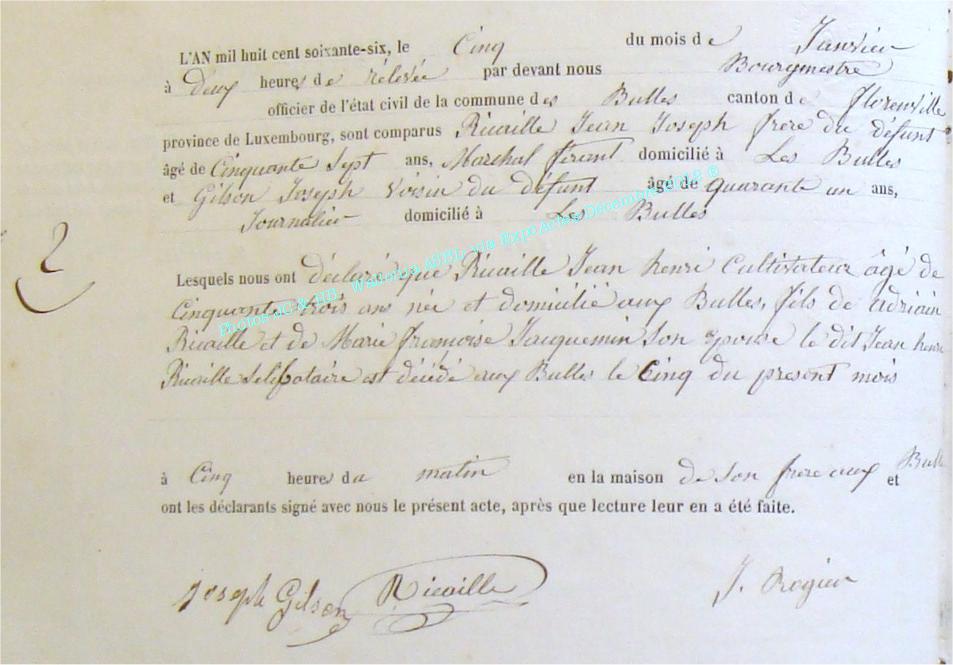 L'AN mil huit cent soixante-six, le Cinq du mois de Janvier
à deux heures de rélevée par devant nous Bourgmestre
officier de l'état civil de la commune des Bulles canton de florenville
province de Luxembourg, sont comparus Ricaille Jean Joseph frere du défunt
âgé de Cinquante Sept ans, Marchal ferant domicilié à Les Bulles
et Gilson Joseph Voisin du défunt âgé de quarante un ans,
Journalier domicilié à Les Bulles
2
Lesquels nous ont déclaré que Ricaille Jean henri Cultivateur âgé de
Cinquante trois ans née et domicilié aux Bulles, fils de adriain
Ricaille et de Marie françoise Jacquemin Son epouse le dit Jean henri
Ricaille Selibataire est décédé aux Bulles le Cinq du present mois
à Cinq heures du matin en la maison de Son frere aux Bulle et
ont les déclarants signé avec nous le présent acte, après que lecture leur en a été faite.
Joseph Gilson Ricaille J. Rogier